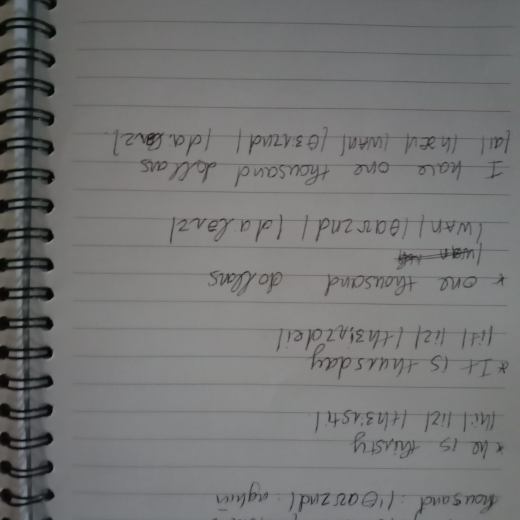 thousand : /ˈθaʊznd/ : nghìn
* he is thirsty
/hi/ /iz/ /thɜːsti/.
* It is thursday
/it/ /iz/ /thɜːzdei/
* one thousand dollars
/wʌn/ /θaʊznd/ /da.lərz/
I have one thousand dollars
/ai/ /hæv/ /wʌn/ /θaʊznd/ /da.lərz/.